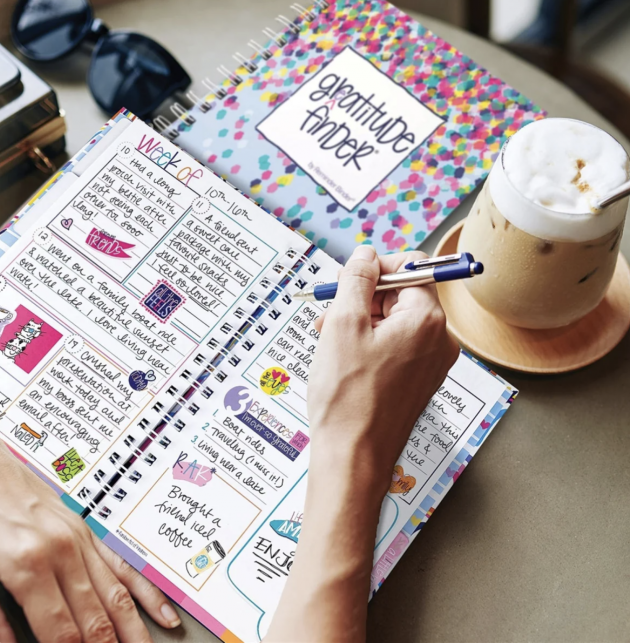 gratitude
finder®
by Reminder Binder®
Week of
10th-16th
10
Had a long
porch visit with
my bestie after
not seeing each
other for sooo
long!
friends
11
A friend sent
a sweet care
package with my
favorite snacks
just to be nice
feel so loved!
ALL THE
FEELS
12
Went on a family boat ride
& watched a beautiful sunset
over the lake. I love living near
water!
14
Crushed my
presentation at
work today and
my boss sent me
an encouraging
email after
and
can
nice
3 Experiences
I'm ever so grateful
1. Boat rides
2. Traveling (I miss it!)
3. Living near a lake
RAK
Brought a
friend iced
coffee
ENJOY
this
food
& 
the